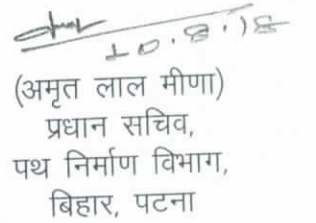 10.8.18
(अमृत लाल मीणा)
प्रधान सचिव,
पथ निर्माण विभाग,
बिहार, पटना